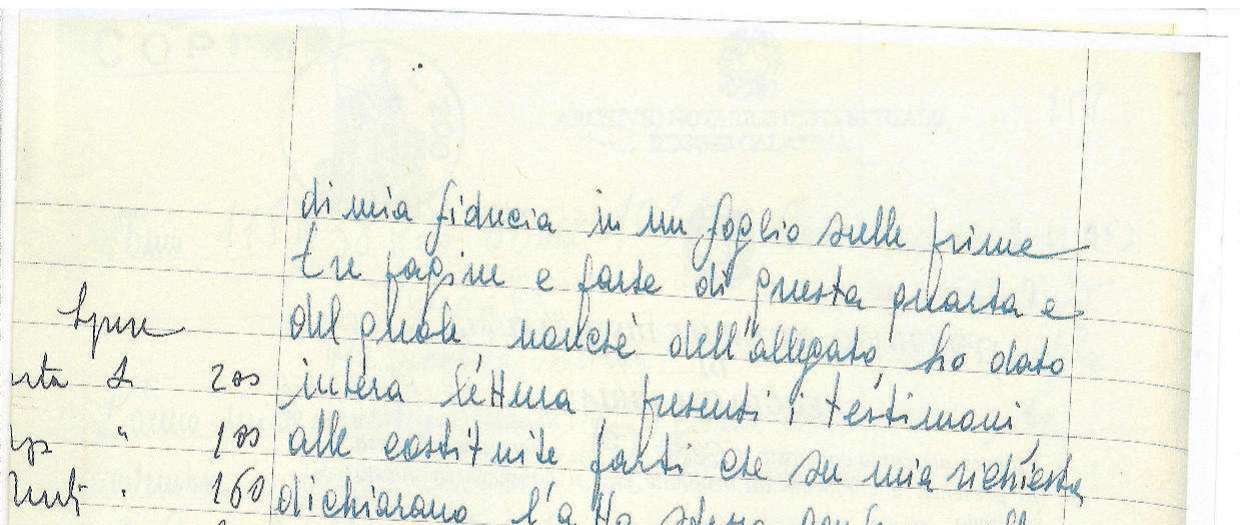 di mia fiducia in un foglio sulle prime
tre pagine e parte di questa quarta e
del quale nonchè dell'allegato, ho dato
intera lettura presenti i testimoni
alle costituite parti che su mia richiesta
dichiarano l'atto stesso
Spese
L 200
" 100
" 160